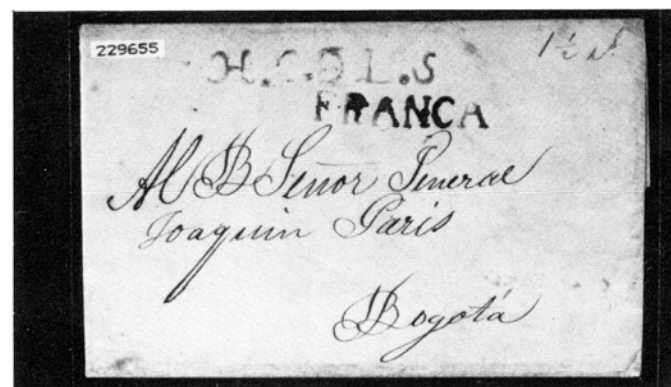 229655
1½ rl
FRANCA
Al B Señor General
Joaquin Paris
Bogotá